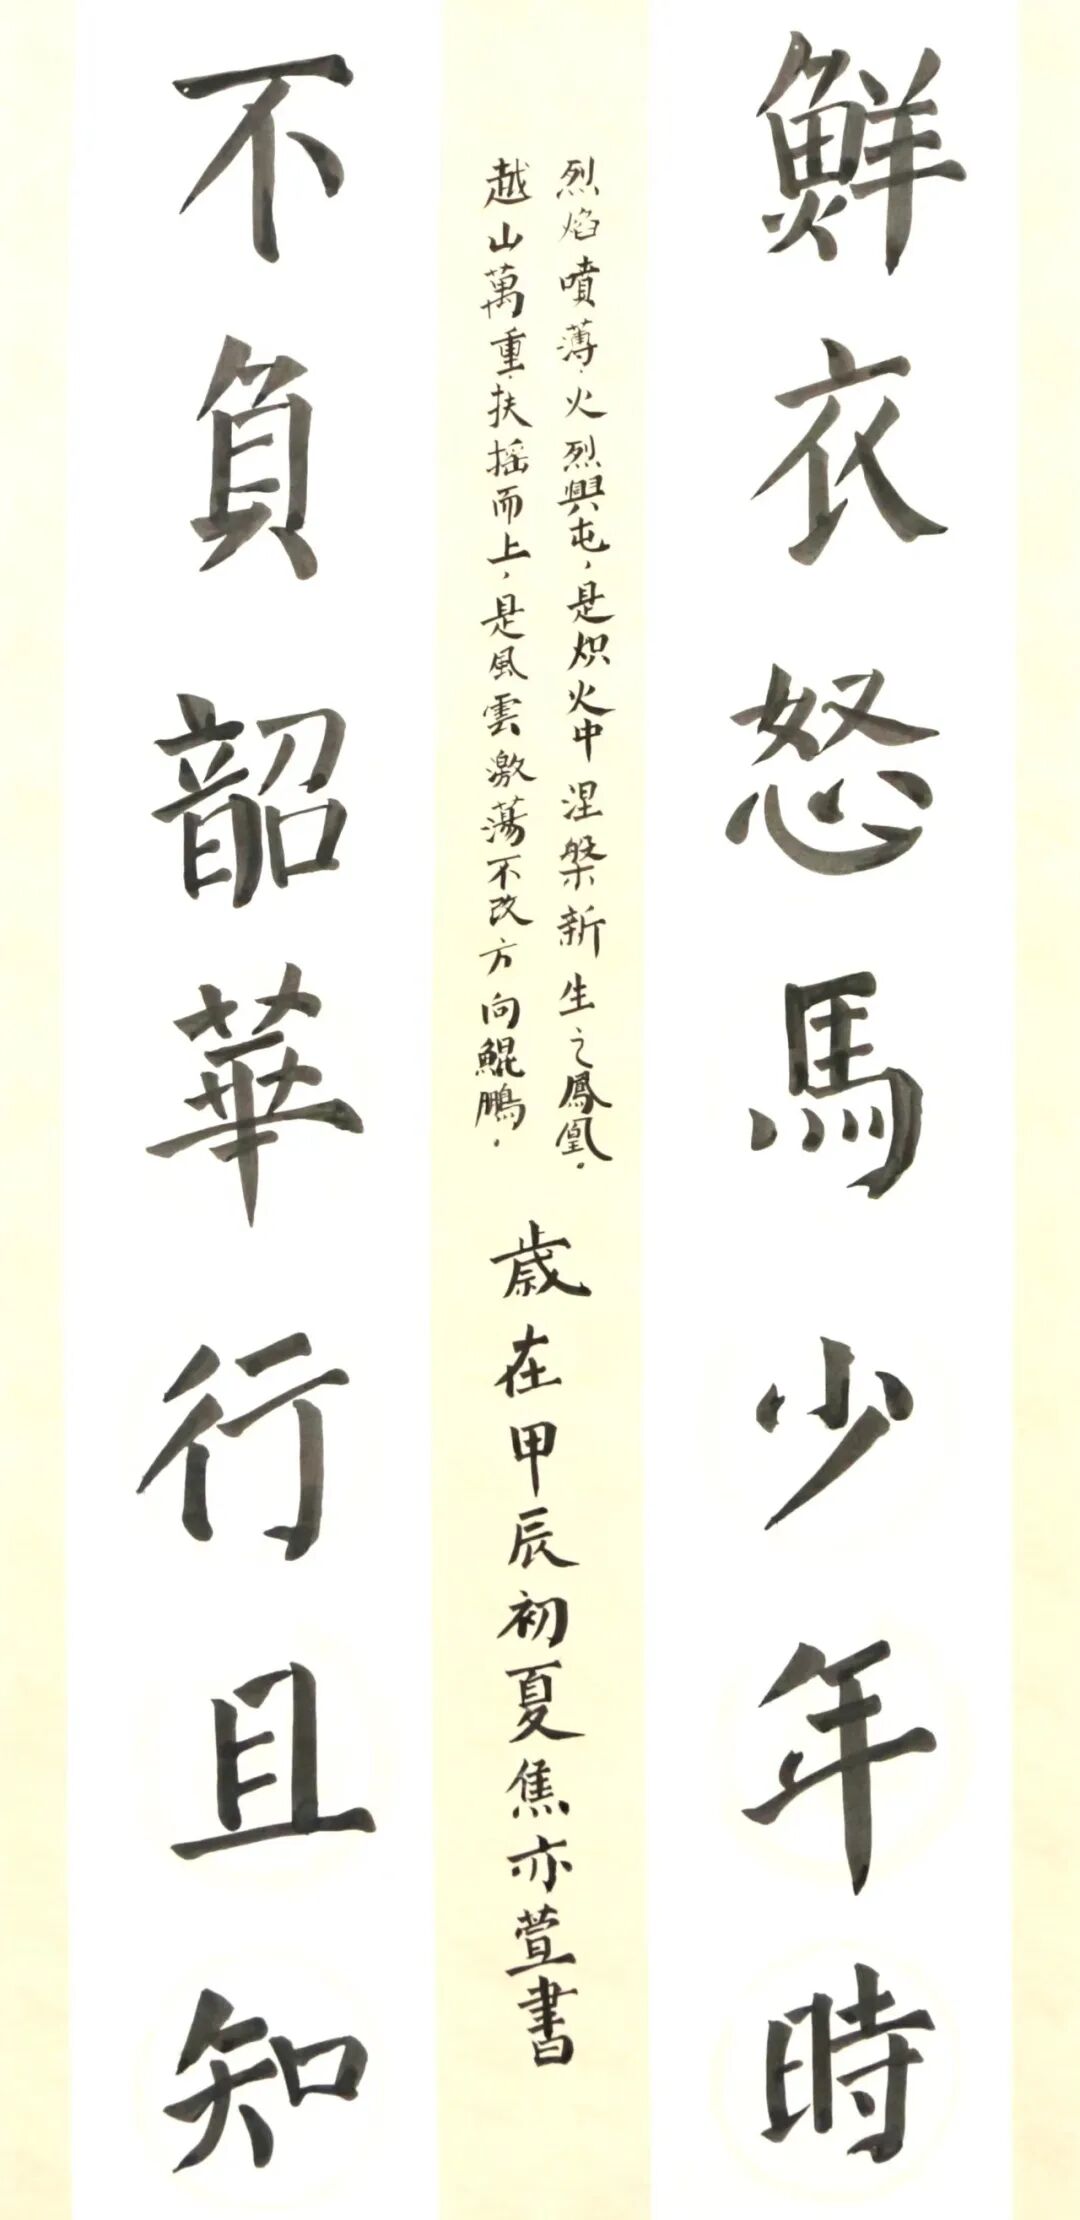 鮮衣怒馬少年時
烈焰噴薄，火烈興屯，是炽火中涅槃新生之鳳凰。
越山萬重，扶摇而上，是風雲激蕩不改方向鯤鵬。
歲在甲辰初夏焦亦萱書
不負韶華行且知